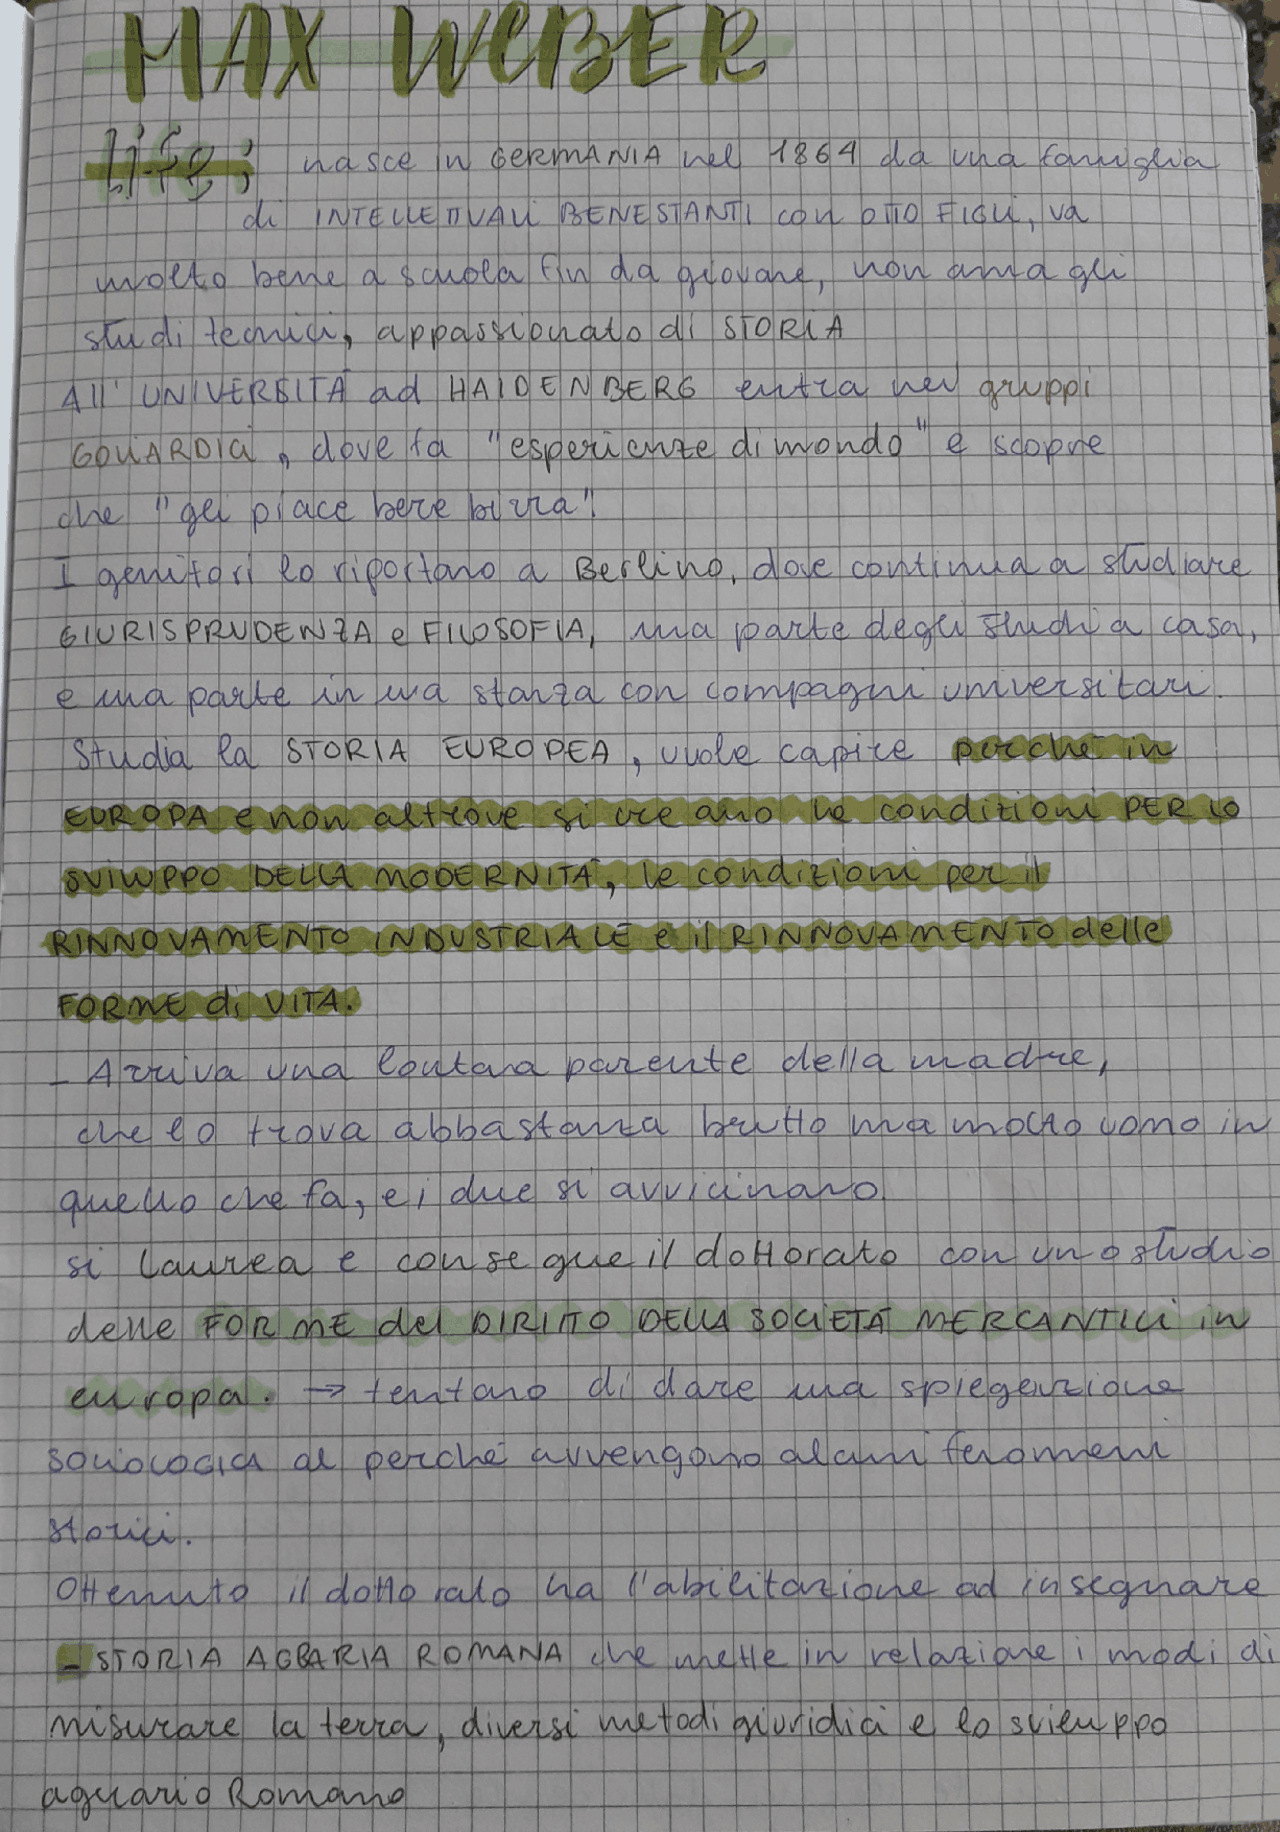 MAX WEBER
life: nasce in GERMANIA nel 1864 da una famiglia
di INTELLETTUALI BENESTANTI con OTTO FIGLI, va
molto bene a scuola fin da giovane, non ama gli
studi tecnici, appassionato di STORIA
All' UNIVERSITÀ ad HAIDENBERG entra nei gruppi
GOLIARDICI, dove fa "esperienze di mondo" e scopre
che "gli piace bere birra".
I genitori lo riportano a Berlino, dove continua a studiare
GIURISPRUDENZA e FILOSOFIA, una parte degli studi a casa,
e una parte in una stanza con compagni universitari.
Studia la STORIA EUROPEA, vuole capire perché in
EUROPA e non altrove si creano le condizioni PER LO
SVILUPPO DELLA MODERNITÀ, le condizioni per il
RINNOVAMENTO INDUSTRIALE e il RINNOVAMENTO delle
FORME di VITA.
- Arriva una lontana parente della madre,
che lo trova abbastanza brutto ma molto uomo in
quello che fa, e i due si avvicinano
si laurea e consegue il dottorato con uno studio
delle FORME del DIRITTO DELLA SOCIETÀ MERCANTILI in
europa. → tentano di dare una spiegazione
sociologica al perché avvengono alcuni fenomeni
storici.
Ottenuto il dottorato ha l'abilitazione ad insegnare
- STORIA AGRARIA ROMANA che mette in relazione i modi di
misurare la terra, diversi metodi giuridici e lo sviluppo
agrario Romano